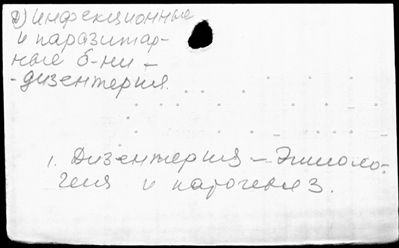 2) инфекционные
и паразитар-
ные б-ни -
- дизентерия.
1. Дизентерия - Этиоло-
гия и патогенез.